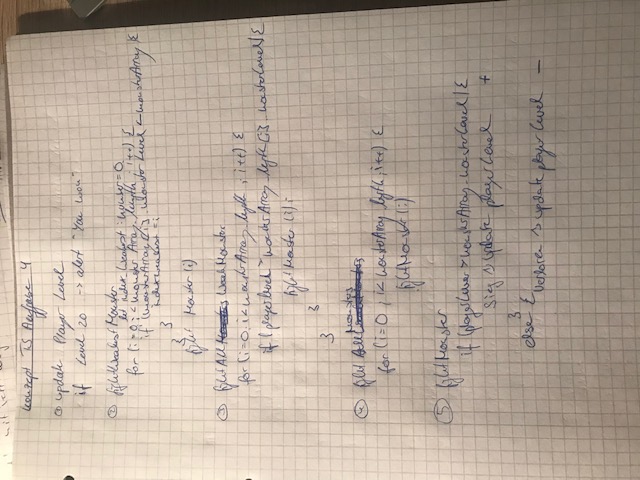 Konzept TS Aufgabe 4
① update Player Level
if Level 20 -> alert "You won"
② fightWeakestMonster
let indexWeakest : number = 0
for (i=0; i < monsterArray.length, i++) {
if (monsterArray[i].monsterLevel < monsterArray {
indexWeakest = i
}
}
fight Monster (i)
③ fightAll WeakMonster
for (i=0, i < monsterArray.length, i++) {
if (playerLevel > monsterArray.length[i].monsterLevel) {
fightMonster (i);
}
}
④ fight All Monsters
for (i=0, i < monsterArray.length, i++) {
fightMonster (i)
⑤ fightMonster
if (playerLever > monsterArray.monsterLevel) {
Sieg -> update playerLevel +
}
else {
verloren -> update playerLevel —